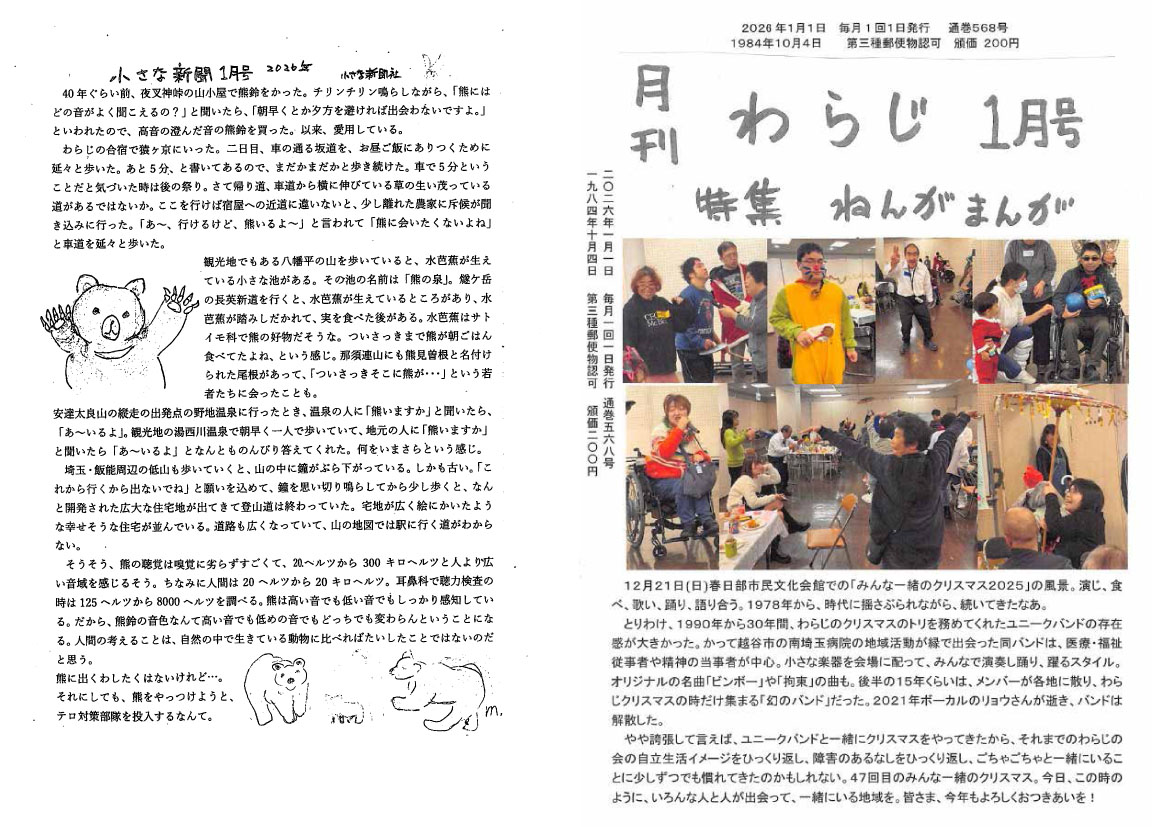 小さな新聞 1月号 2026年 小さな新聞社
40年ぐらい前、夜叉神峠の山小屋で熊鈴をかった。チリンチリン鳴らしながら、「熊には
どの音がよく聞こえるの？」と聞いたら、「朝早くとか夕方を避ければ出会わないですよ。」
といわれたので、高音の澄んだ音の熊鈴を買った。以来、愛用している。
わらじの合宿で猿ヶ京にいった。二日目、車の通る坂道を、お昼ご飯にありつくために
延々と歩いた。あと５分、と書いてあるので、まだかまだかと歩き続けた。車で５分という
ことだと気づいた時は後の祭り。さて帰り道、車道から横に伸びている草の生い茂っている
道があるではないか。ここを行けば宿屋への近道に違いないと、少し離れた農家に斥候が聞
き込みに行った。「あ～、行けるけど、熊いるよ～」と言われて「熊に会いたくないよね」
と車道を延々と歩いた。
観光地でもある八幡平の山を歩いていると、水芭蕉が生え
ている小さな池がある。その池の名前は「熊の泉」。燧ケ岳
の長英新道を行くと、水芭蕉が生えているところがあり、水
芭蕉が踏みしだかれて、実を食べた後がある。水芭蕉はサト
イモ科で熊の好物だそうな。ついさっきまで熊が朝ごはん
食べてたよね、という感じ。那須連山にも熊見曽根と名付け
られた尾根があって、「ついさっきそこに熊が・・・」という若
者たちに会ったことも。
安達太良山の縦走の出発点の野地温泉に行ったとき、温泉の人に「熊いますか」と聞いたら、
「あ～いるよ」。観光地の湯西川温泉で朝早く一人で歩いていて、地元の人に「熊いますか」
と聞いたら「あ～いるよ」となんとものんびり答えてくれた。何をいまさらという感じ。
埼玉・飯能周辺の低山も歩いていくと、山の中に鐘がぶら下がっている。しかも古い。「こ
れから行くから出ないでね」と願いを込めて、鐘を思い切り鳴らしてから少し歩くと、なん
と開発された広大な住宅地が出てきて登山道は終わっていた。宅地が広く絵にかいたよう
な幸せそうな住宅が並んでいる。道路も広くなっていて、山の地図では駅に行く道がわから
ない。
そうそう、熊の聴覚は嗅覚に劣らずすごくて、20ヘルツから 300 キロヘルツと人より広
い音域を感じるそう。ちなみに人間は 20 ヘルツから 20 キロヘルツ。耳鼻科で聴力検査の
時は 125 ヘルツから 8000 ヘルツを調べる。熊は高い音でも低い音でもしっかり感知してい
る。だから、熊鈴の音色なんて高い音でも低めの音でもどっちでも変わらんということにな
る。人間の考えることは、自然の中で生きている動物に比べればたいしたことではないのだ
と思う。
熊に出くわしたくはないけれど…。
それにしても、熊をやっつけようと、
テロ対策部隊を投入するなんて。
m.
2026年1月1日 毎月1回1日発行 通巻568号
1984年10月4日 第三種郵便物認可 頒価 200円
月刊 わらじ 1月号
特集 ねんがまんが
二〇二六年一月一日 毎月一回一日発行 通巻五六八号
一九八四年十月四日 第三種郵便物認可 頒価二〇〇円
12月21日(日)春日部市民文化会館での「みんな一緒のクリスマス2025」の風景。演じ、食
べ、歌い、踊り、語り合う。1978年から、時代に揺さぶられながら、続いてきたなあ。
とりわけ、1990年から30年間、わらじのクリスマスのトリを務めてくれたユニークバンドの存在
感が大きかった。かって越谷市の南埼玉病院の地域活動が縁で出会った同バンドは、医療・福祉
従事者や精神の当事者が中心。小さな楽器を会場に配って、みんなで演奏し踊り、躍るスタイル。
オリジナルの名曲「ビンボー」や「拘束」の曲も。後半の15年くらいは、メンバーが各地に散り、わら
じクリスマスの時だけ集まる「幻のバンド」だった。2021年ボーカルのリョウさんが逝き、バンドは
解散した。
やや誇張して言えば、ユニークバンドと一緒にクリスマスをやってきたから、それまでのわらじの
会の自立生活イメージをひっくり返し、障害のあるなしをひっくり返し、ごちゃごちゃと一緒にいるこ
とに少しずつでも慣れてきたのかもしれない。47回目のみんな一緒のクリスマス。今日、この時の
ように、いろんな人と人が出会って、一緒にいる地域を。皆さま、今年もよろしくおつきあいを！